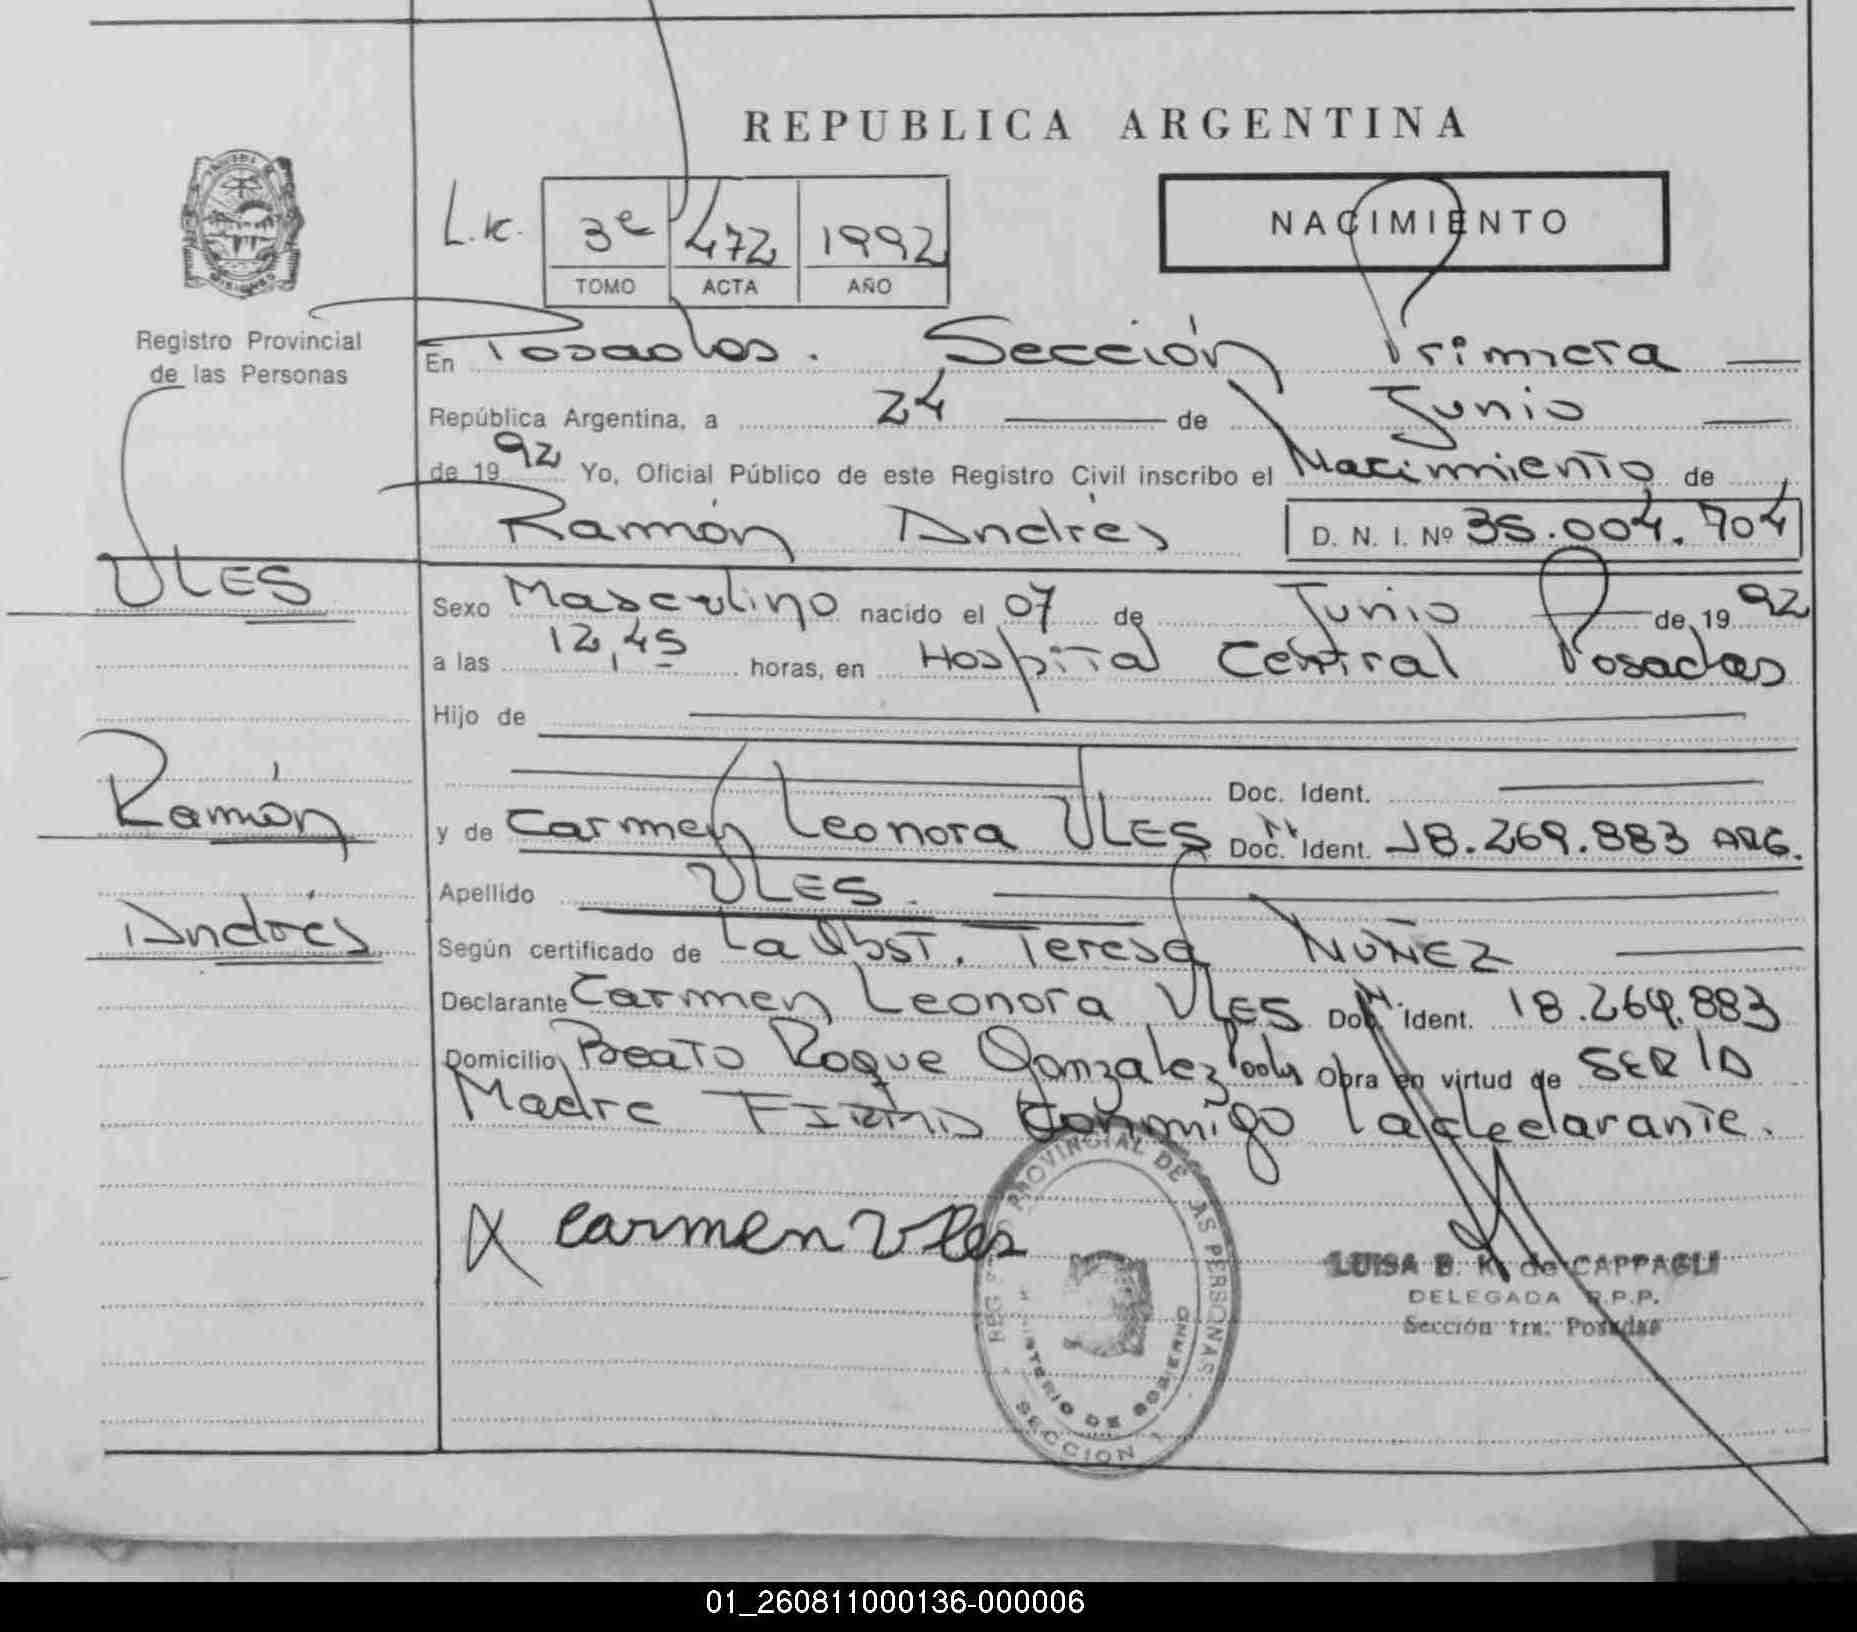 REPUBLICA ARGENTINA
L.K. 3e 472 1992
TOMO ACTA AÑO
NACIMIENTO
Registro Provincial
de las Personas
En Posadas. Sección Primera
República Argentina, a 24 de Junio
de 1992 Yo, Oficial Público de este Registro Civil inscribo el Nacimiento de
Ramón Andrés D. N. I. Nº 35.004.704
VLES
Ramón
Andrés
Sexo Masculino nacido el 07 de Junio de 1992
a las 12,45 horas, en Hospital Central Posadas
Hijo de
Doc. Ident.
y de Carmen Leonora VLES Doc. Ident. 18.269.883 ARG.
Apellido VLES.
Según certificado de La Obst. Teresa NUÑEZ
Declarante Carmen Leonora VLES Doc. Ident. 18.269.883
Domicilio Beato Roque Gonzalez Obra en virtud de SER LA
Madre FIRMA Conmigo la declarante.
Carmen Vles
REG PROVINCIAL DE AS PERSONAS
MINISTERIO DE GOBIERNO
SECCION 1
LUISA B. K. de CAPPAGLI
DELEGADA R.P.P.
Sección 1ra. Posadas
01_260811000136-000006